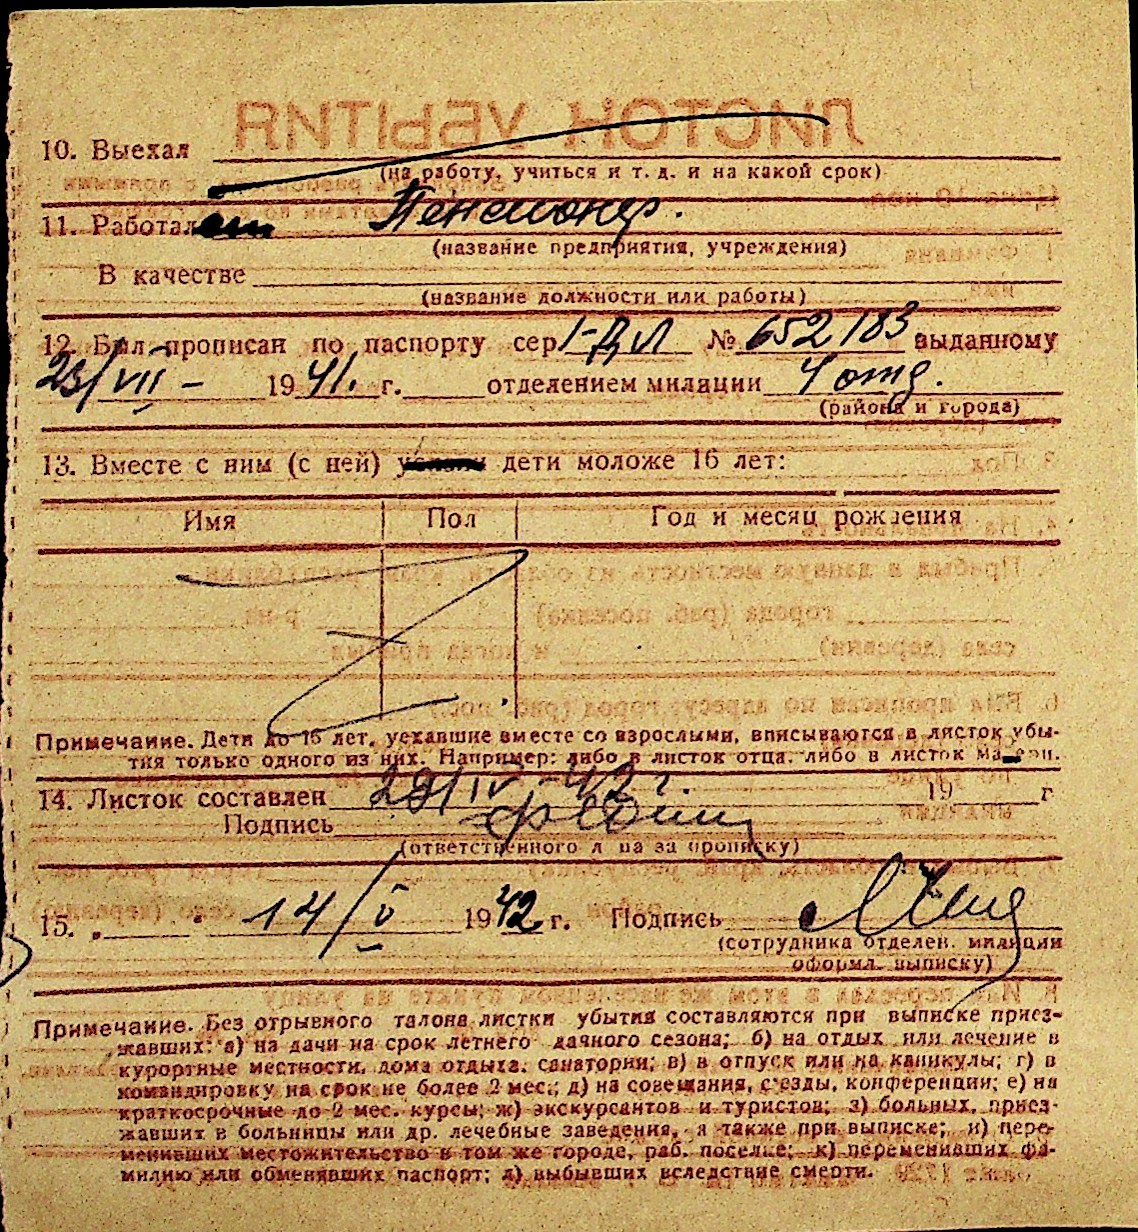 ЛИСТОК УБЫТИЯ
10. Выехал
(на работу, учиться и т. д. и на какой срок)
11. Работал Пенсионер.
(название предприятия, учреждения)
В качестве
(название должности или работы)
12. Был прописан по паспорту сер. I-ДЛ № 652183 выданному
23/VII – 1941. г. отделением милиции 4 отд.
(района и города)
13. Вместе с ним (с ней) дети моложе 16 лет:
Имя Пол Год и месяц рождения
Примечание. Дети до 16 лет, уехавшие вместе со взрослыми, вписываются в листок убы-
тия только одного из них. Например: либо в листок отца, либо в листок матери.
14. Листок составлен 29/IV-42 г. 19 г
Подпись
(ответственного лица за прописку)
15. 14/V 1942 г. Подпись
(сотрудника отделен. милиции
оформл. выписку)
Примечание. Без отрывного талона листки убытия составляются при выписке приез-
жавших: а) на дачи на срок летнего дачного сезона; б) на отдых или лечение в
курортные местности, дома отдыха, санатории; в) в отпуск или на каникулы; г) в
командировку на срок не более 2 мес.; д) на совещания, с'езды, конференции; е) на
краткосрочные до 2 мес. курсы; ж) экскурсантов и туристов; з) больных, приез-
жавших в больницы или др. лечебные заведения, а также при выписке; и) пере-
менивших местожительство в том же городе, раб. поселке; к) переменивших фа-
милию или обменявших паспорт; л) выбывших вследствие смерти.